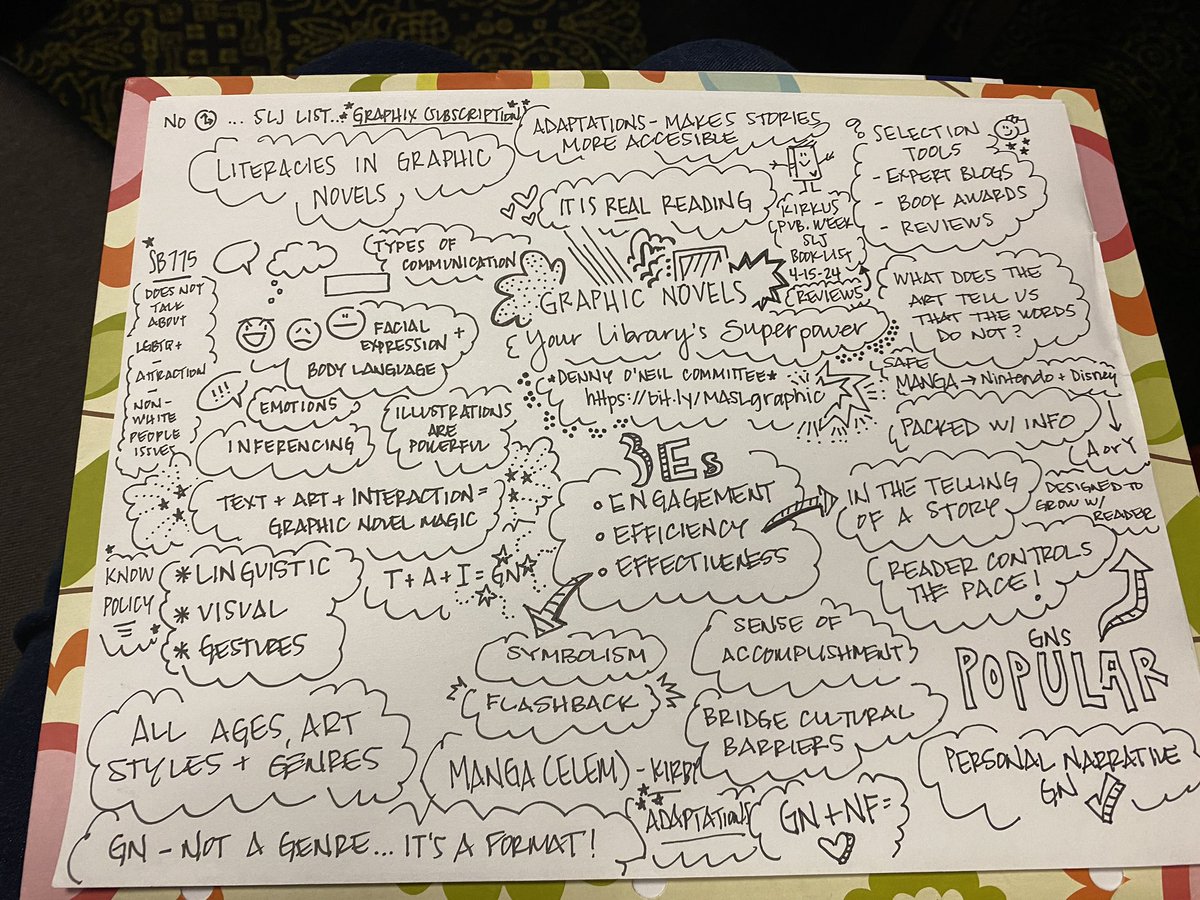 NO ... SLJ LIST... *GRAPHIX SUBSCRIPTION*
LITERACIES IN GRAPHIC
NOVELS
ADAPTATIONS - MAKES STORIES
MORE ACCESIBLE
SELECTION
TOOLS
- EXPERT BLOGS
- BOOK AWARDS
- REVIEWS
IT IS REAL READING
KIRKUS
PUB. WEEK
SLJ
BOOKLIST
4-15-24
REVIEWS
SB775
DOES NOT
TALK
ABOUT
LGBTQ+
-
ATTRACTION
-
NON-
WHITE
PEOPLE
ISSUES
TYPES OF
COMMUNICATION
FACIAL
EXPRESSION +
BODY LANGUAGE
GRAPHIC NOVELS
Your Library's Superpower
*DENNY O'NEIL COMMITTEE*
https://bit.ly/MASLgraphic
WHAT DOES THE
ART TELL US
THAT THE WORDS
DO NOT?
SAFE
MANGA → Nintendo + Disney
A or Y
DESIGNED TO
GROW W/
READER
!!!
EMOTIONS
INFERENCING
ILLUSTRATIONS
ARE
POWERFUL
PACKED W/ INFO
TEXT + ART + INTERACTION =
GRAPHIC NOVEL MAGIC
3Es
• ENGAGEMENT
• EFFICIENCY
• EFFECTILENESS
IN THE TELLING
OF A STORY
READER CONTROLS
THE PACE!
KNOW
POLICY
* LINGUISTIC
* VISUAL
* GESTURES
T + A + I = GN
SYMBOLISM
FLASHBACK
SENSE OF
ACCOMPLISHMENT
BRIDGE CULTURAL
BARRIERS
GNS
POPULAR
ALL AGES, ART
STYLES + GENRES
MANGA (ELEM) - KIRBY
ADAPTATIONS
GN + NF =
PERSONAL NARRATIVE
GN
GN - NOT A GENRE... IT'S A FORMAT!